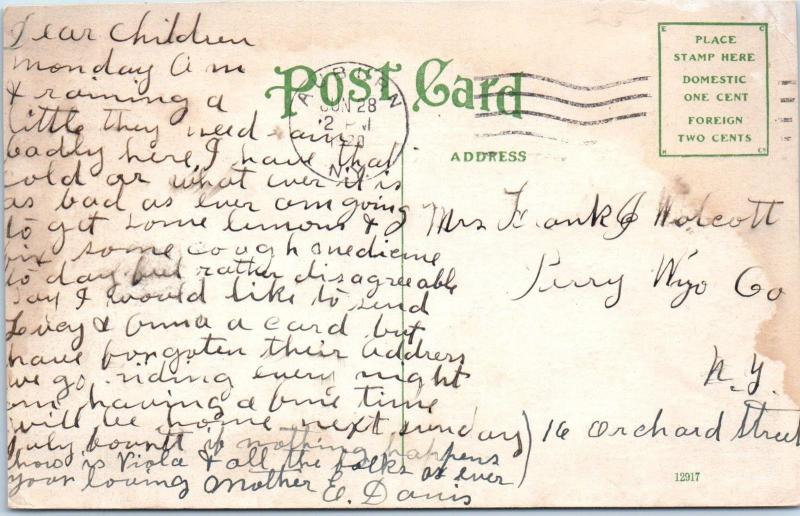 Dear Children
Monday A m
& raining a
little they need rain
badly here, I have that
cold or what ever it is
as bad as ever am going
to get some lemons &
fix some cough medicine
to day but rather disagreeable
day I would like to send
Lucy & Anna a card but
have forgoten their address
we go riding every night
am having a fine time
will be home next sunday
July if nothing happens
how is Viola & all the folks as ever
your loving Mother E. Davis
POST CARD
AUBURN
JUN 28
2 PM
N.Y.
PLACE
STAMP HERE
DOMESTIC
ONE CENT
FOREIGN
TWO CENTS
ADDRESS
Mrs Frank J Wolcott
Perry Wyo Co
N.Y.
16 Orchard Street
12917